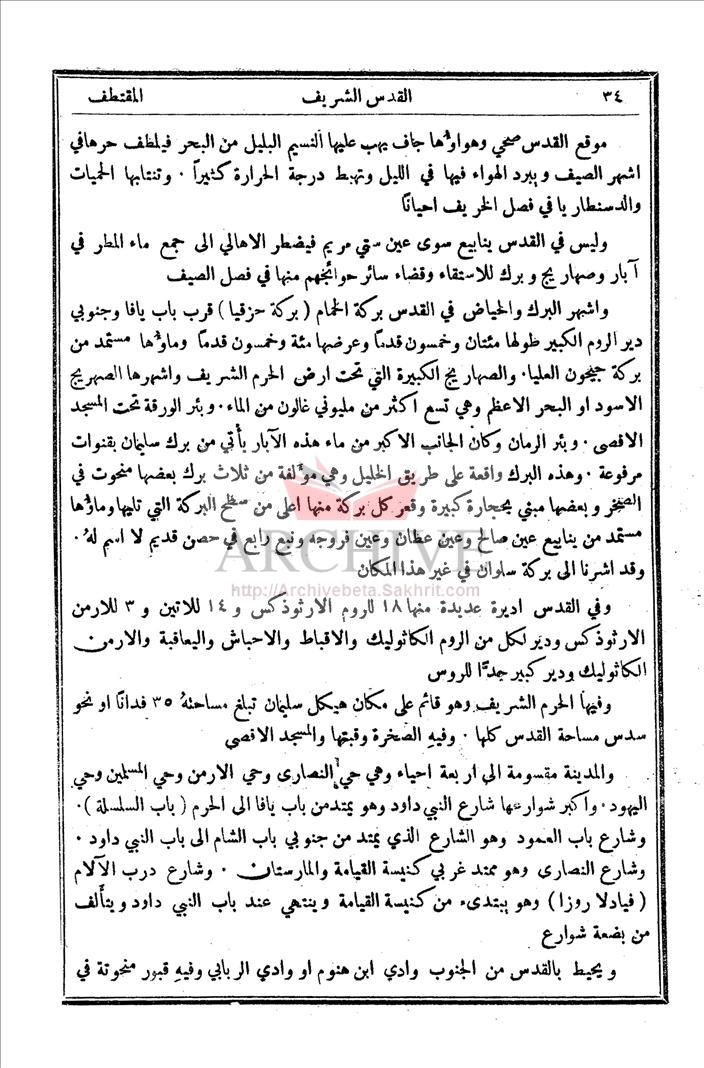 ٣٤ القدس الشريف المقتطف
موقع القدس صحي وهواؤها جاف يهب عليها النسيم البليل من البحر فيلطف حرها في
اشهر الصيف ويبرد الهواء فيها في الليل وتهبط درجة الحرارة كثيراً · وتنتابها الحميات
والدسنطاريا في فصل الخريف احيانًا
وليس في القدس ينابيع سوى عين ستي مريم فيضطر الاهالي الى جمع ماء المطر في
آبار وصهاريج وبرك للاستقاء وقضاء سائر حوائجهم منها في فصل الصيف
واشهر البرك والحياض في القدس بركة الحمام ( بركة حزقيا ) قرب باب يافا وجنوبي
دير الروم الكبير طولها مئتان وخمسون قدمًا وعرضها مئة وخمسون قدمًا وماؤها مستمد من
بركة جيحون العليا· والصهاريج الكبيرة التي تحت ارض الحرم الشريف واشهرها الصهريج
الاسود او البحر الاعظم وهي تسع اكثر من مليوني غالون من الماء· وبئر الورقة تحت المسجد
الاقصى · وبئر الرمان وكان الجانب الاكبر من ماء هذه الآبار يأتي من برك سليمان بقنوات
مرفوعة · وهذه البرك واقعة على طريق الخليل وهي مؤلفة من ثلاث برك بعضها منحوت في
الصخر وبعضها مبني بحجارة كبيرة وقعر كل بركة منها اعلى من سطح البركة التي تليها وماؤها
مستمد من ينابيع عين صالح وعين عطان وعين فروجه ونبع رابع في حصن قديم لا اسم لهُ ·
وقد اشرنا الى بركة سلوان في غير هذا المكان
ARCHIVE
http://Archivebeta.Sakhrit.com
وفي القدس اديرة عديدة منها ١٨ للروم الارثوذكس و ١٤ للاتين و ٣ للارمن
الارثوذكس ودير لكل من الروم الكاثوليك والاقباط والاحباش واليعاقبة والارمن
الكاثوليك ودير كبير جدًّا للروس
وفيها الحرم الشريف وهو قائم على مكان هيكل سليمان تبلغ مساحتهُ ٣٥ فدانًا او نحو
سدس مساحة القدس كلها · وفيهِ الصخرة وقبتها والمسجد الاقصى
والمدينة مقسومة الى اربعة احياء وهي حي النصارى وحي الارمن وحي المسلمين وحي
اليهود· واكبر شوارعها شارع النبي داود وهو يمتد من باب يافا الى الحرم ( باب السلسلة ) ·
وشارع باب العمود وهو الشارع الذي يمتد من جنوبي باب الشام الى باب النبي داود ·
وشارع النصارى وهو ممتد غربي كنيسة القيامة والمارستان · وشارع درب الآلام
( فيادلا روزا ) وهو يبتدىء من كنيسة القيامة وينتهي عند باب النبي داود ويتألف
من بضعة شوارع
ويحيط بالقدس من الجنوب وادي ابن هنوم او وادي الربابي وفيهِ قبور منحوتة في